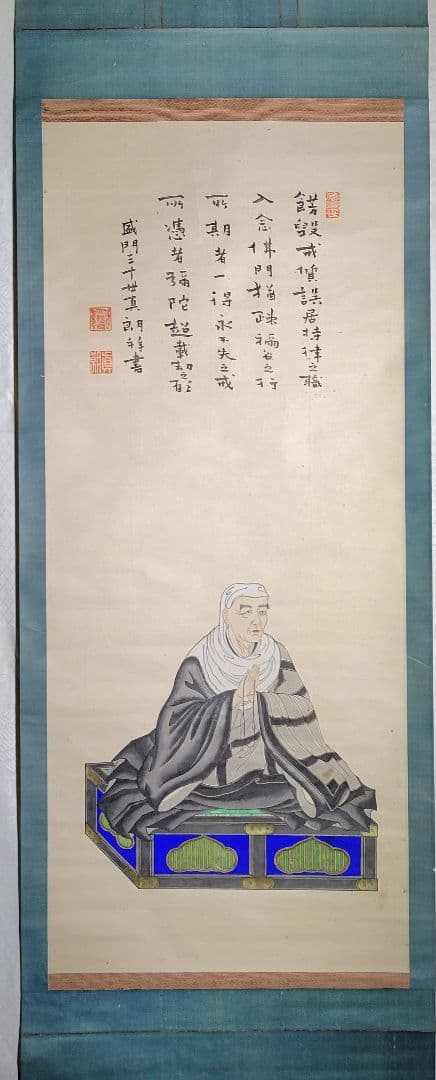 毀戒 誤居持律之職
入念佛門猶疎稱名之行
所期者一得永不失之戒
所憑者彌陀超載劫之願
盛門三十世真朗 書